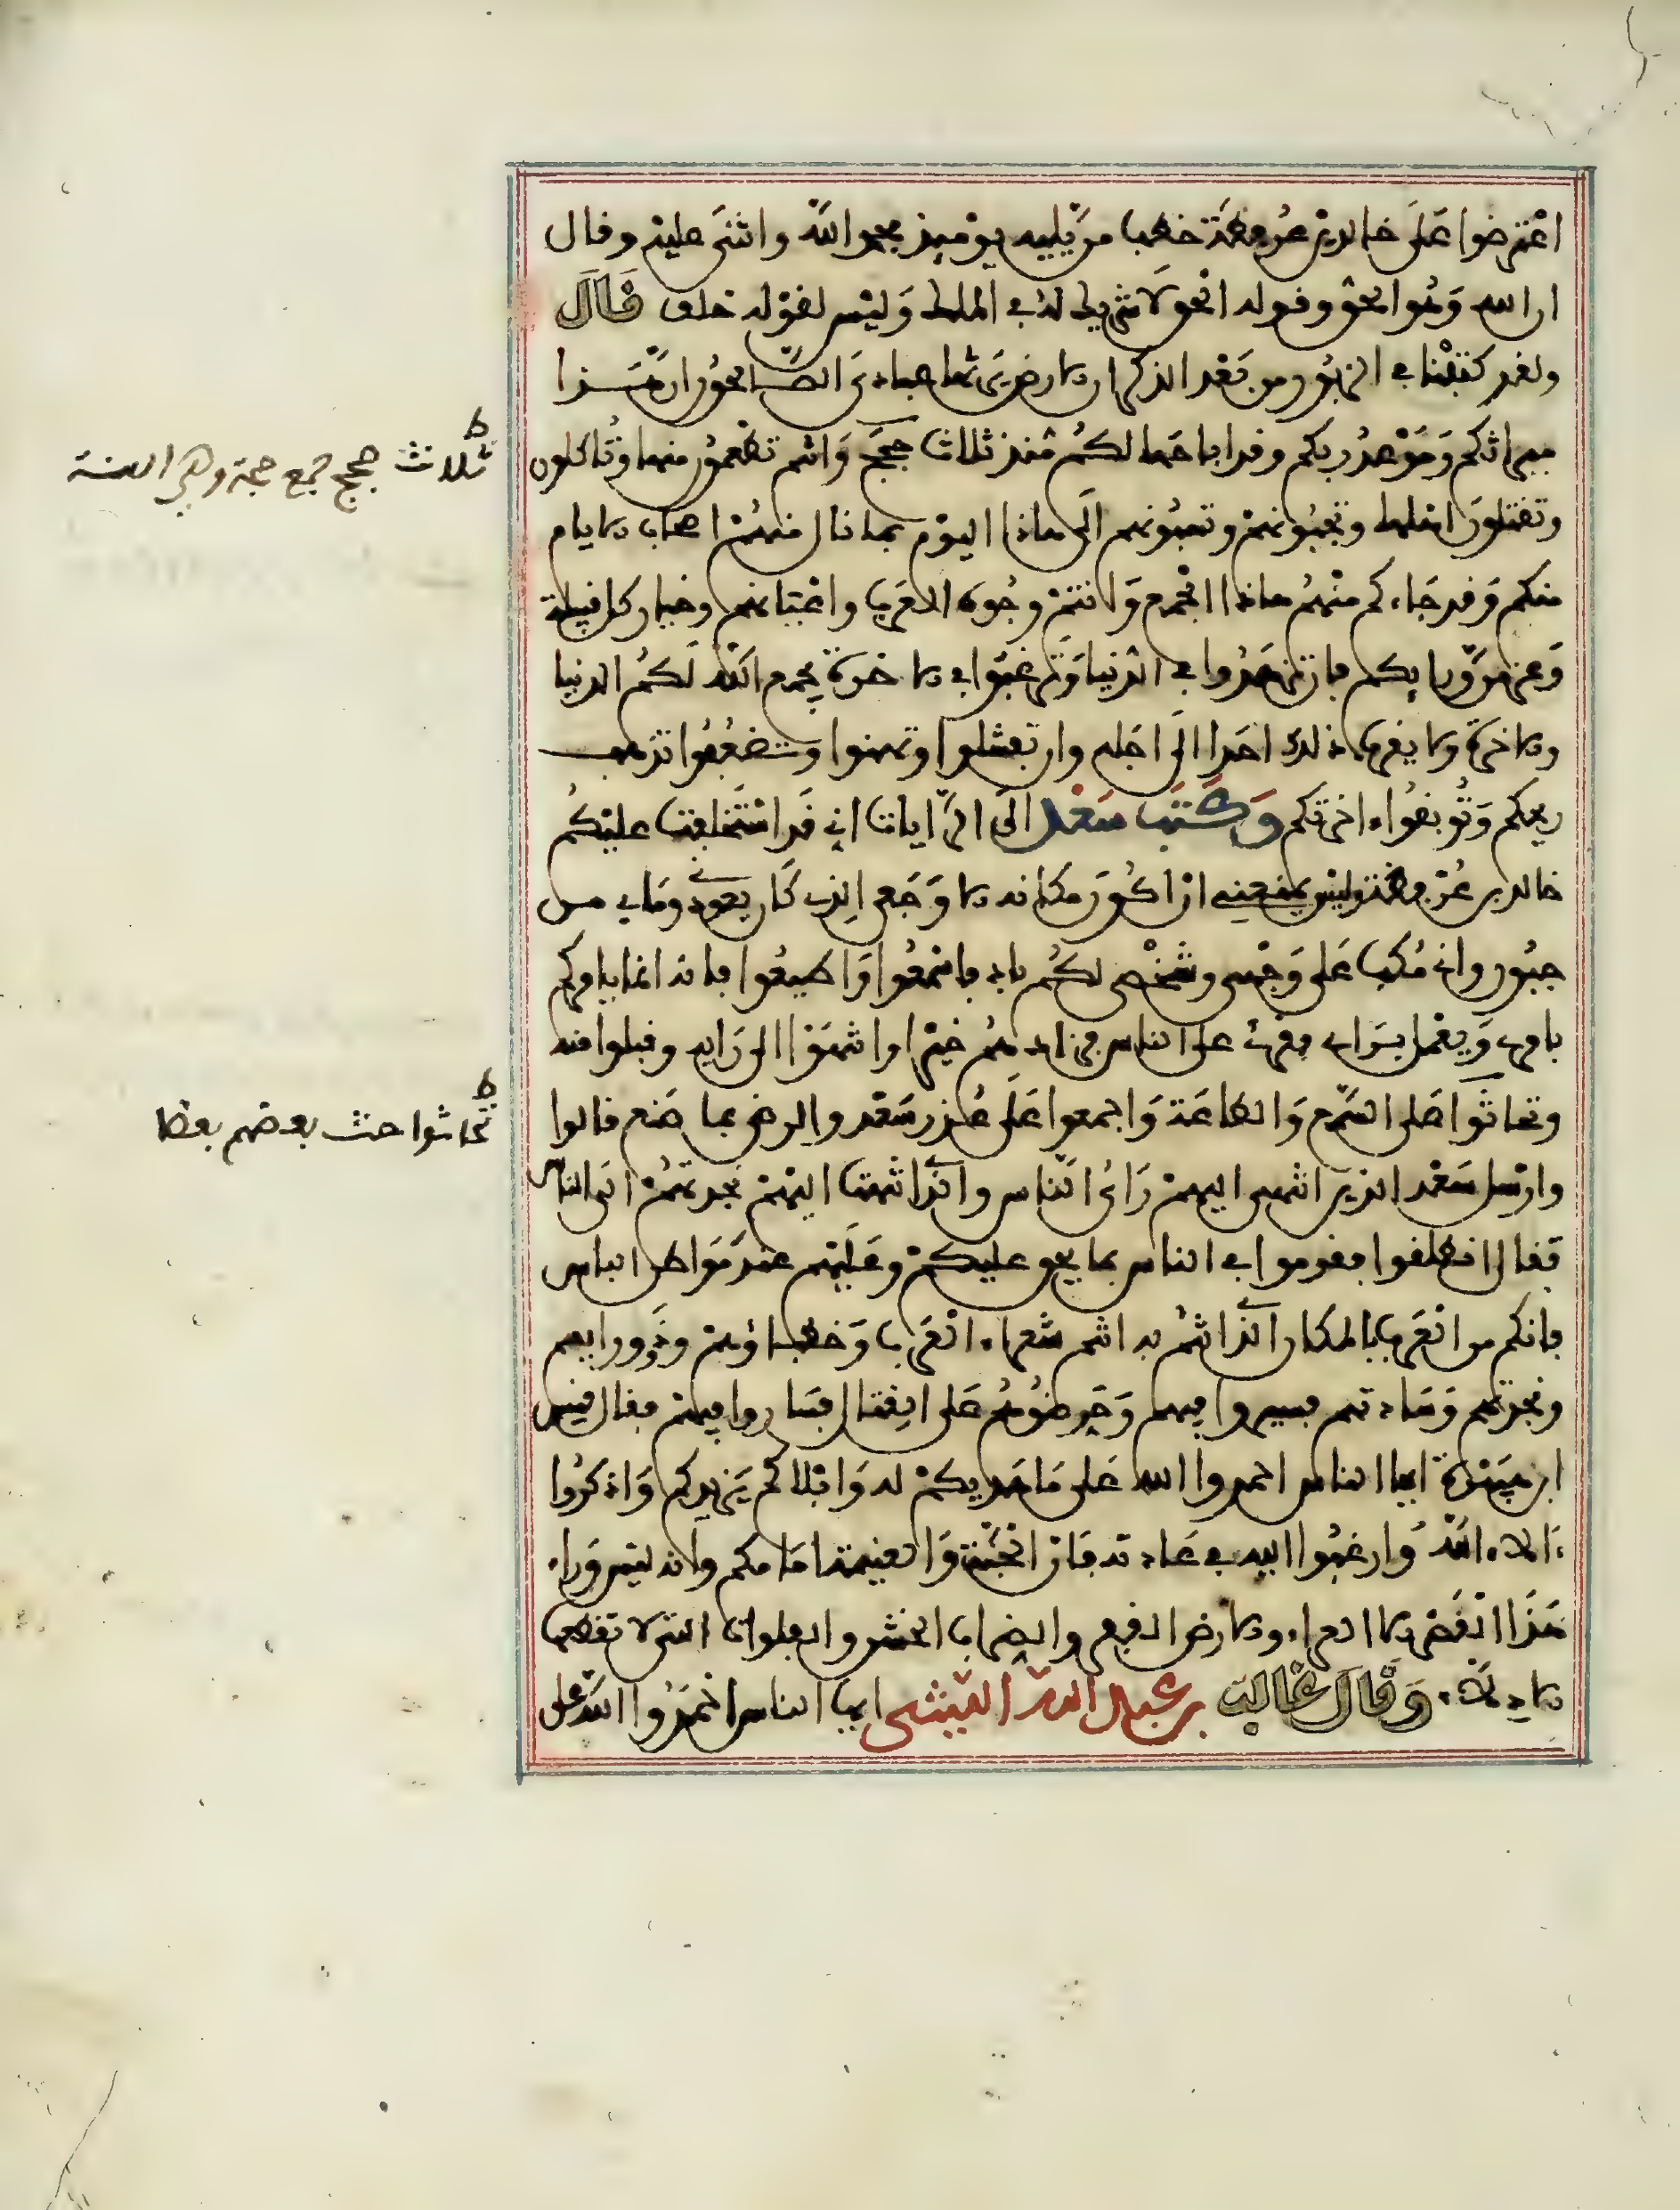 اعترضوا على خالد بن عرفطة خطب من يليه يومئذ فحمد الله واثنى عليه وقال
ان الله وهو الحق وقوله الحق لا شريك له في الملك وليس لقوله خلف قال
ولقد كتبنا في الزبور من بعد الذكر ان الارض يرثها عبادي الصالحون ان هذا
ميراثكم وموعد ربكم وقد اباحها لكم منذ ثلاث حجج وانتم تطعمون منها وتاكلون
وتقتلون اهلها وتجبونهم وتسبونهم الى هاذا اليوم بما نال منهم اصحاب الايام
منكم وقد جاءكم منهم هاذا الجمع وانتم وجوه العرب واعيانهم وخيار كل قبيلة
وعز من وراءكم فان تزهدوا في الدنيا وترغبوا في الاخرة يجمع الله لكم الدنيا
والاخرة ولا يقرب ذلك احدا الى اجله وان تفشلوا وتهنوا وتضعفوا تذهب
ريحكم وتوبقوا ءاخرتكم وكتب سعد الى الرايات اني قد استخلفت عليكم
خالد بن عرفطة وليس يمنعني ان اكون مكانه الا وجعي الذي كان يعودني وما بي من
حبون واني مكب على وجهي وشخصي لكم باد فاسمعوا واطيعوا فانه انما يامركم
بامري ويعمل برايي فقرئ على الناس فزادهم خيرا وانتهوا الى رايه وقبلوا منه
وتحاثوا على السمع والطاعة واجمعوا على عذر سعد والرضى بما صنع قالوا
وارسل سعد الذين انتهى اليهم راي الناس والذين انتهت اليهم نجدتهم الى الناس
فقال انطلقوا فقوموا في الناس بما يحق عليكم وعليهم عند مواطن الباس
فانكم من العرب بالمكان الذي انتم به انتم شعراء العرب وخطباؤهم وذوو رايهم
ونجدتهم وسادتهم فسيروا فيهم وحرضوهم على القتال فساروا فيهم فقال قيس
ابن هبيرة ايها الناس احمدوا الله على ما هديكم له وابلاكم يزيدكم واذكروا
ءالاء الله وارغبوا اليه في عادته فان الجنة والغنيمة امامكم وانه ليس وراء
هذا القصر الا العراء والارض القفر والضراب الخشن والفلوات التي لا تقطعها
الادلة. وقال غالب بن عبد الله الليثي ايها الناس احمدوا الله على
ط
ثلاث حجج جمع حجة وهي السنة
ط
تحاثوا حث بعضهم بعضا